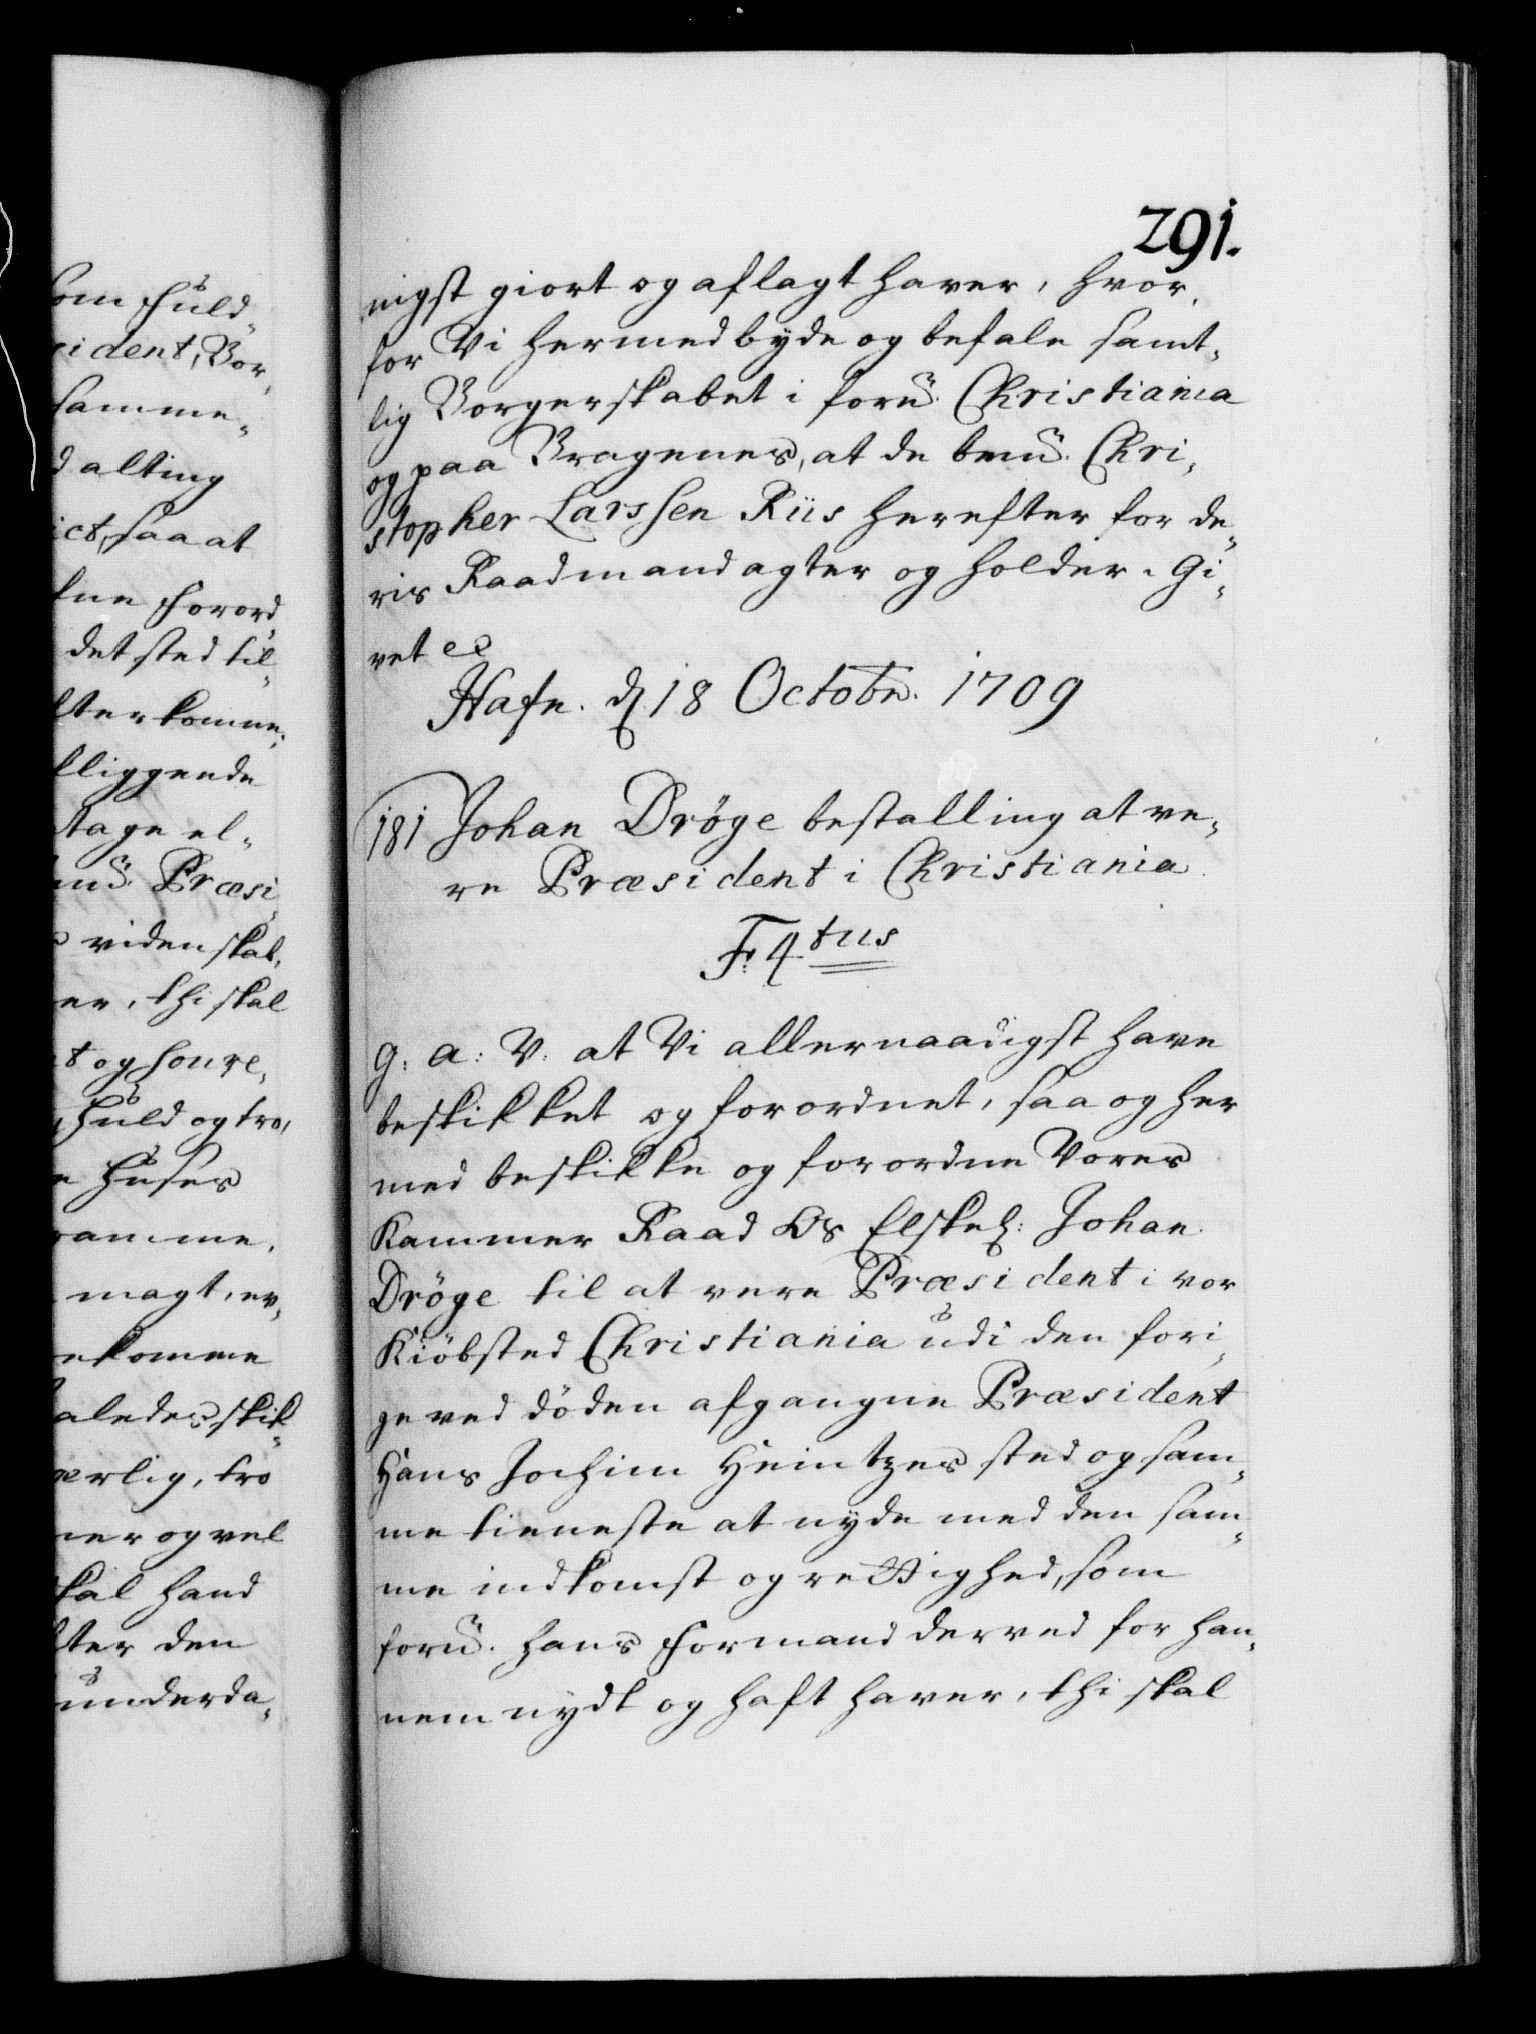 som huld
sident, Bor¬
samme¬
d alting
ict, saa at
sne Forord
det sted til¬
fter komme¬
lliggende
tage el¬
nũ. Præsi
videnskab,
er, thi skal
t og soure¬
, huld og tro,
e Huses
ramme,
magt, er¬
ekomme
aledes skik¬
ærlig, tro
ner og vel
skal hand
fter den
underda¬
291.
nigst giort og aflagt haver, hvor¬
for Vi hermed byde og befale samt¬
lig Borgerskabet i forñ. Christiania
og paa Bragenes, at de bemñ. Chri¬
stopher Larssen Riis herefter for de¬
ris Raadmand agter og holder. Gi¬
vet ec
Hafn. d 18 Octobr. 1709
181 Johan Dröge bestalling at ve¬
re Præsident i Christiania.
F. 4tus
G. A: V. at Vi allernaadigst have
beskikket og forordnet, saa og her
med beskikke og forordne Vores
Kammer Raad Os Elskel: Johan
Dröge til at vere Præsident i vor
Kiöbsted Christiania udi den fori¬
ge ved döden afgangne Præsident
Hans Jochim Heintzes sted og sam¬
me tieneste at nyde med den sam¬
me indkomst og rettighed, som
forñ. hans Formand derved for han¬
nem nydt og haft haver, thi skal